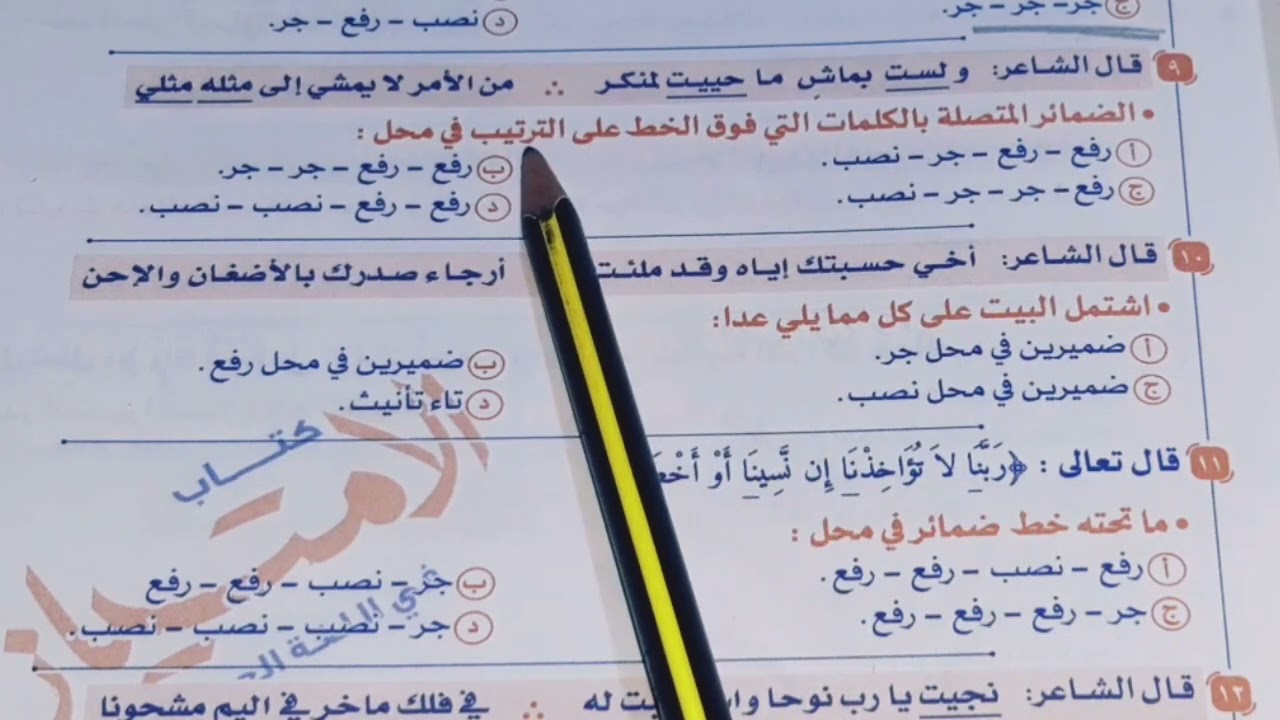 ج جر - جر - جر.
د نصب - رفع - جر.
٩ قال الشاعر: ولست بماشِ ما حييت لمنكر ∴ من الأمر لا يمشي إلى مثله مثلي
• الضمائر المتصلة بالكلمات التي فوق الخط على الترتيب في محل :
أ رفع - رفع - جر - نصب.
ب رفع - رفع - جر - جر.
ج رفع - جر - جر - نصب.
د رفع - رفع - نصب - نصب.
١٠ قال الشاعر: أخي حسبتك إياه وقد ملئت أرجاء صدرك بالأضغان والإحن
• اشتمل البيت على كل مما يلي عدا:
أ ضميرين في محل جر.
ب ضميرين في محل رفع.
ج ضميرين في محل نصب.
د تاء تأنيث.
١١ قال تعالى : ﴿رَبَّنَا لاَ تُؤَاخِذْنَا إِن نَّسِينَا أَوْ
• ما تحته خط ضمائر في محل :
أ رفع - نصب - رفع - رفع.
ب جر - نصب - رفع - رفع
ج جر - رفع - رفع - رفع.
د جر - نصب - نصب - نصب.
كتاب
الامتحان
في اللغة
١٢ قال الشاعر: نجيت يا رب نوحا له ∴ في فلك ماخر في اليم مشحونا